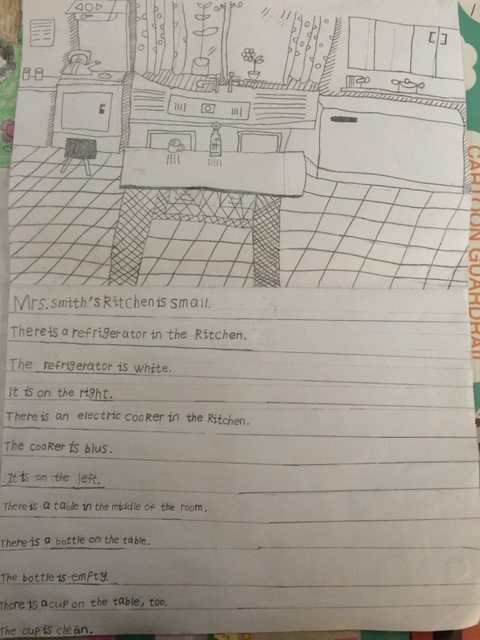 CAPTION GUARDRAIL
Mrs. Smith's Kitchen is small.
There is a refrigerator in the Kitchen.
The refrigerator is white.
It is on the right.
There is an electric cooker in the Kitchen.
The cooker is blus.
It is on the left.
There is a table in the middle of the room.
There is a bottle on the table.
The bottle is empty.
There is a cup on the table, too.
The cup is clean.